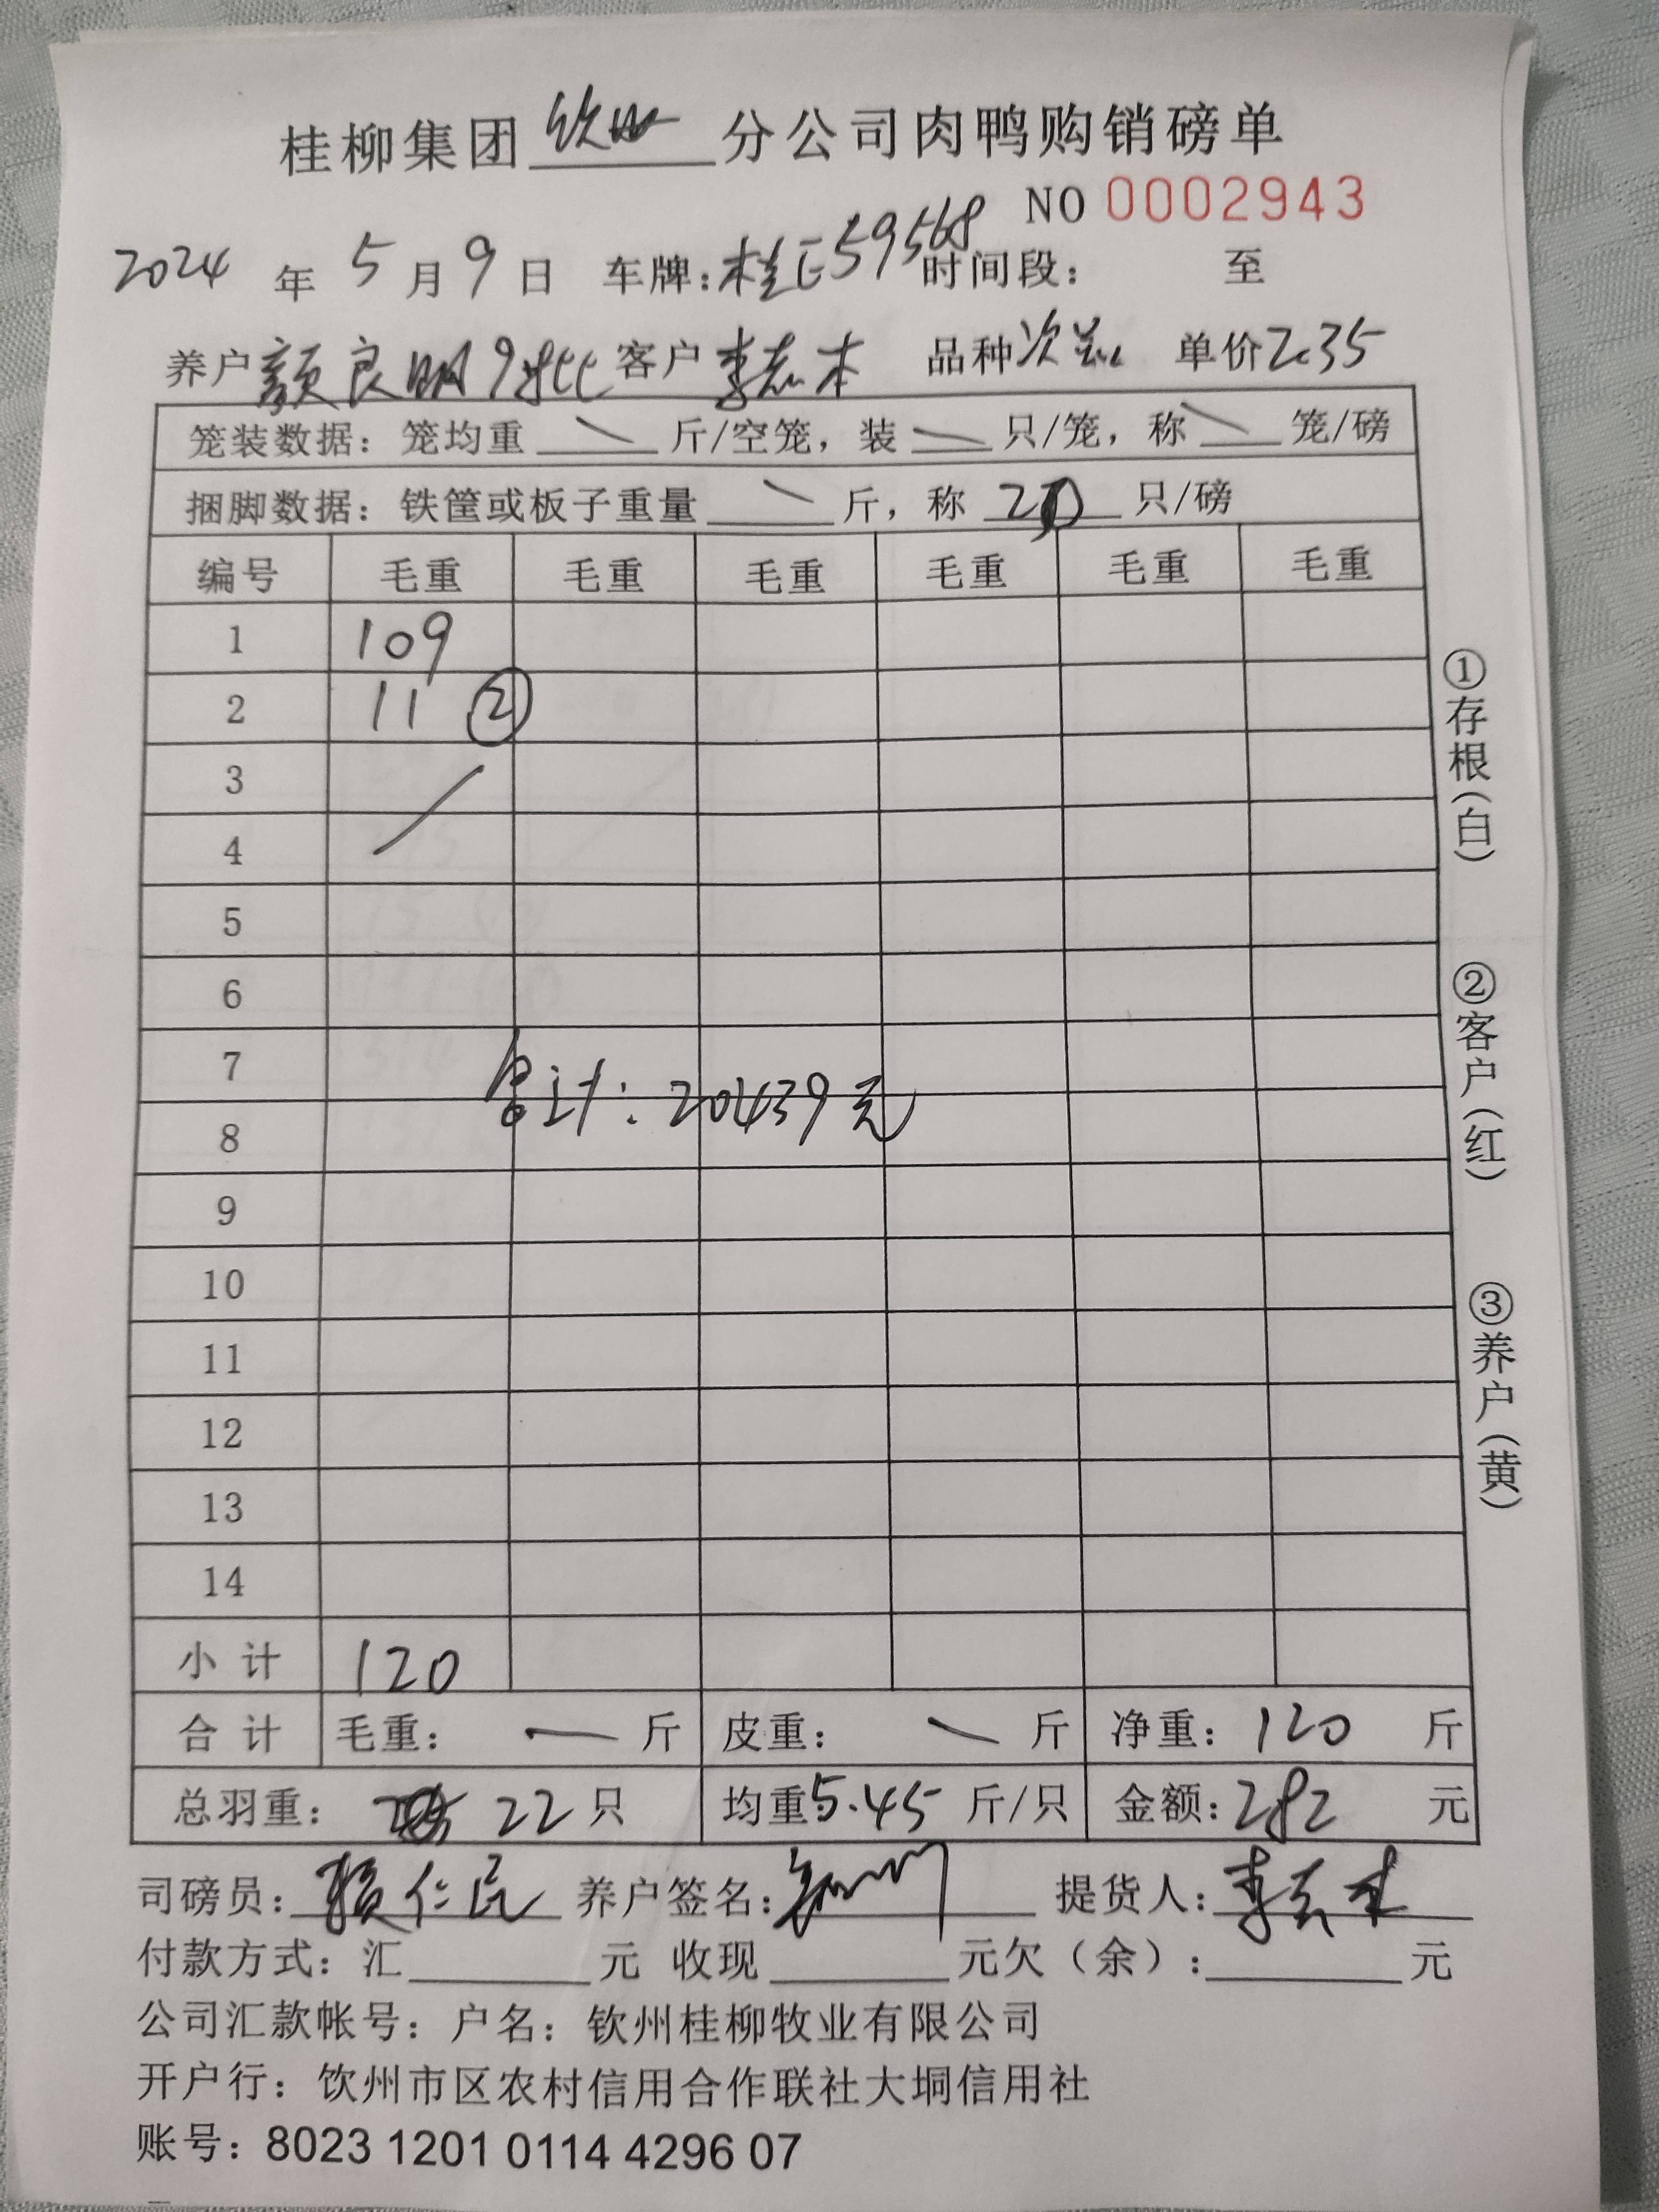 桂柳集团 钦州 分公司肉鸭购销磅单
NO 0002943
2024 年 5 月 9 日 车牌：桂E59568 时间段： 至
养户 颜良明9批 客户 李志本 品种 次 单价 2.35
笼装数据：笼均重 — 斤/空笼，装 — 只/笼，称 — 笼/磅
捆脚数据：铁筐或板子重量 — 斤，称 20 只/磅
编号 毛重 毛重 毛重 毛重 毛重 毛重
1 109
2 11 ②
3
4
5
6
7
合计：20439元
8
9
10
11
12
13
14
小计 120
合计 毛重： — 斤 皮重： — 斤 净重：120 斤
总羽重： 22 只 均重 5.45 斤/只 金额：282 元
司磅员：赖仁民 养户签名： 提货人：李志本
付款方式：汇 元 收现 元欠（余）： 元
公司汇款帐号：户名：钦州桂柳牧业有限公司
开户行：钦州市区农村信用合作联社大垌信用社
账号：8023 1201 0114 4296 07
①存根（白）
②客户（红）
③养户（黄）